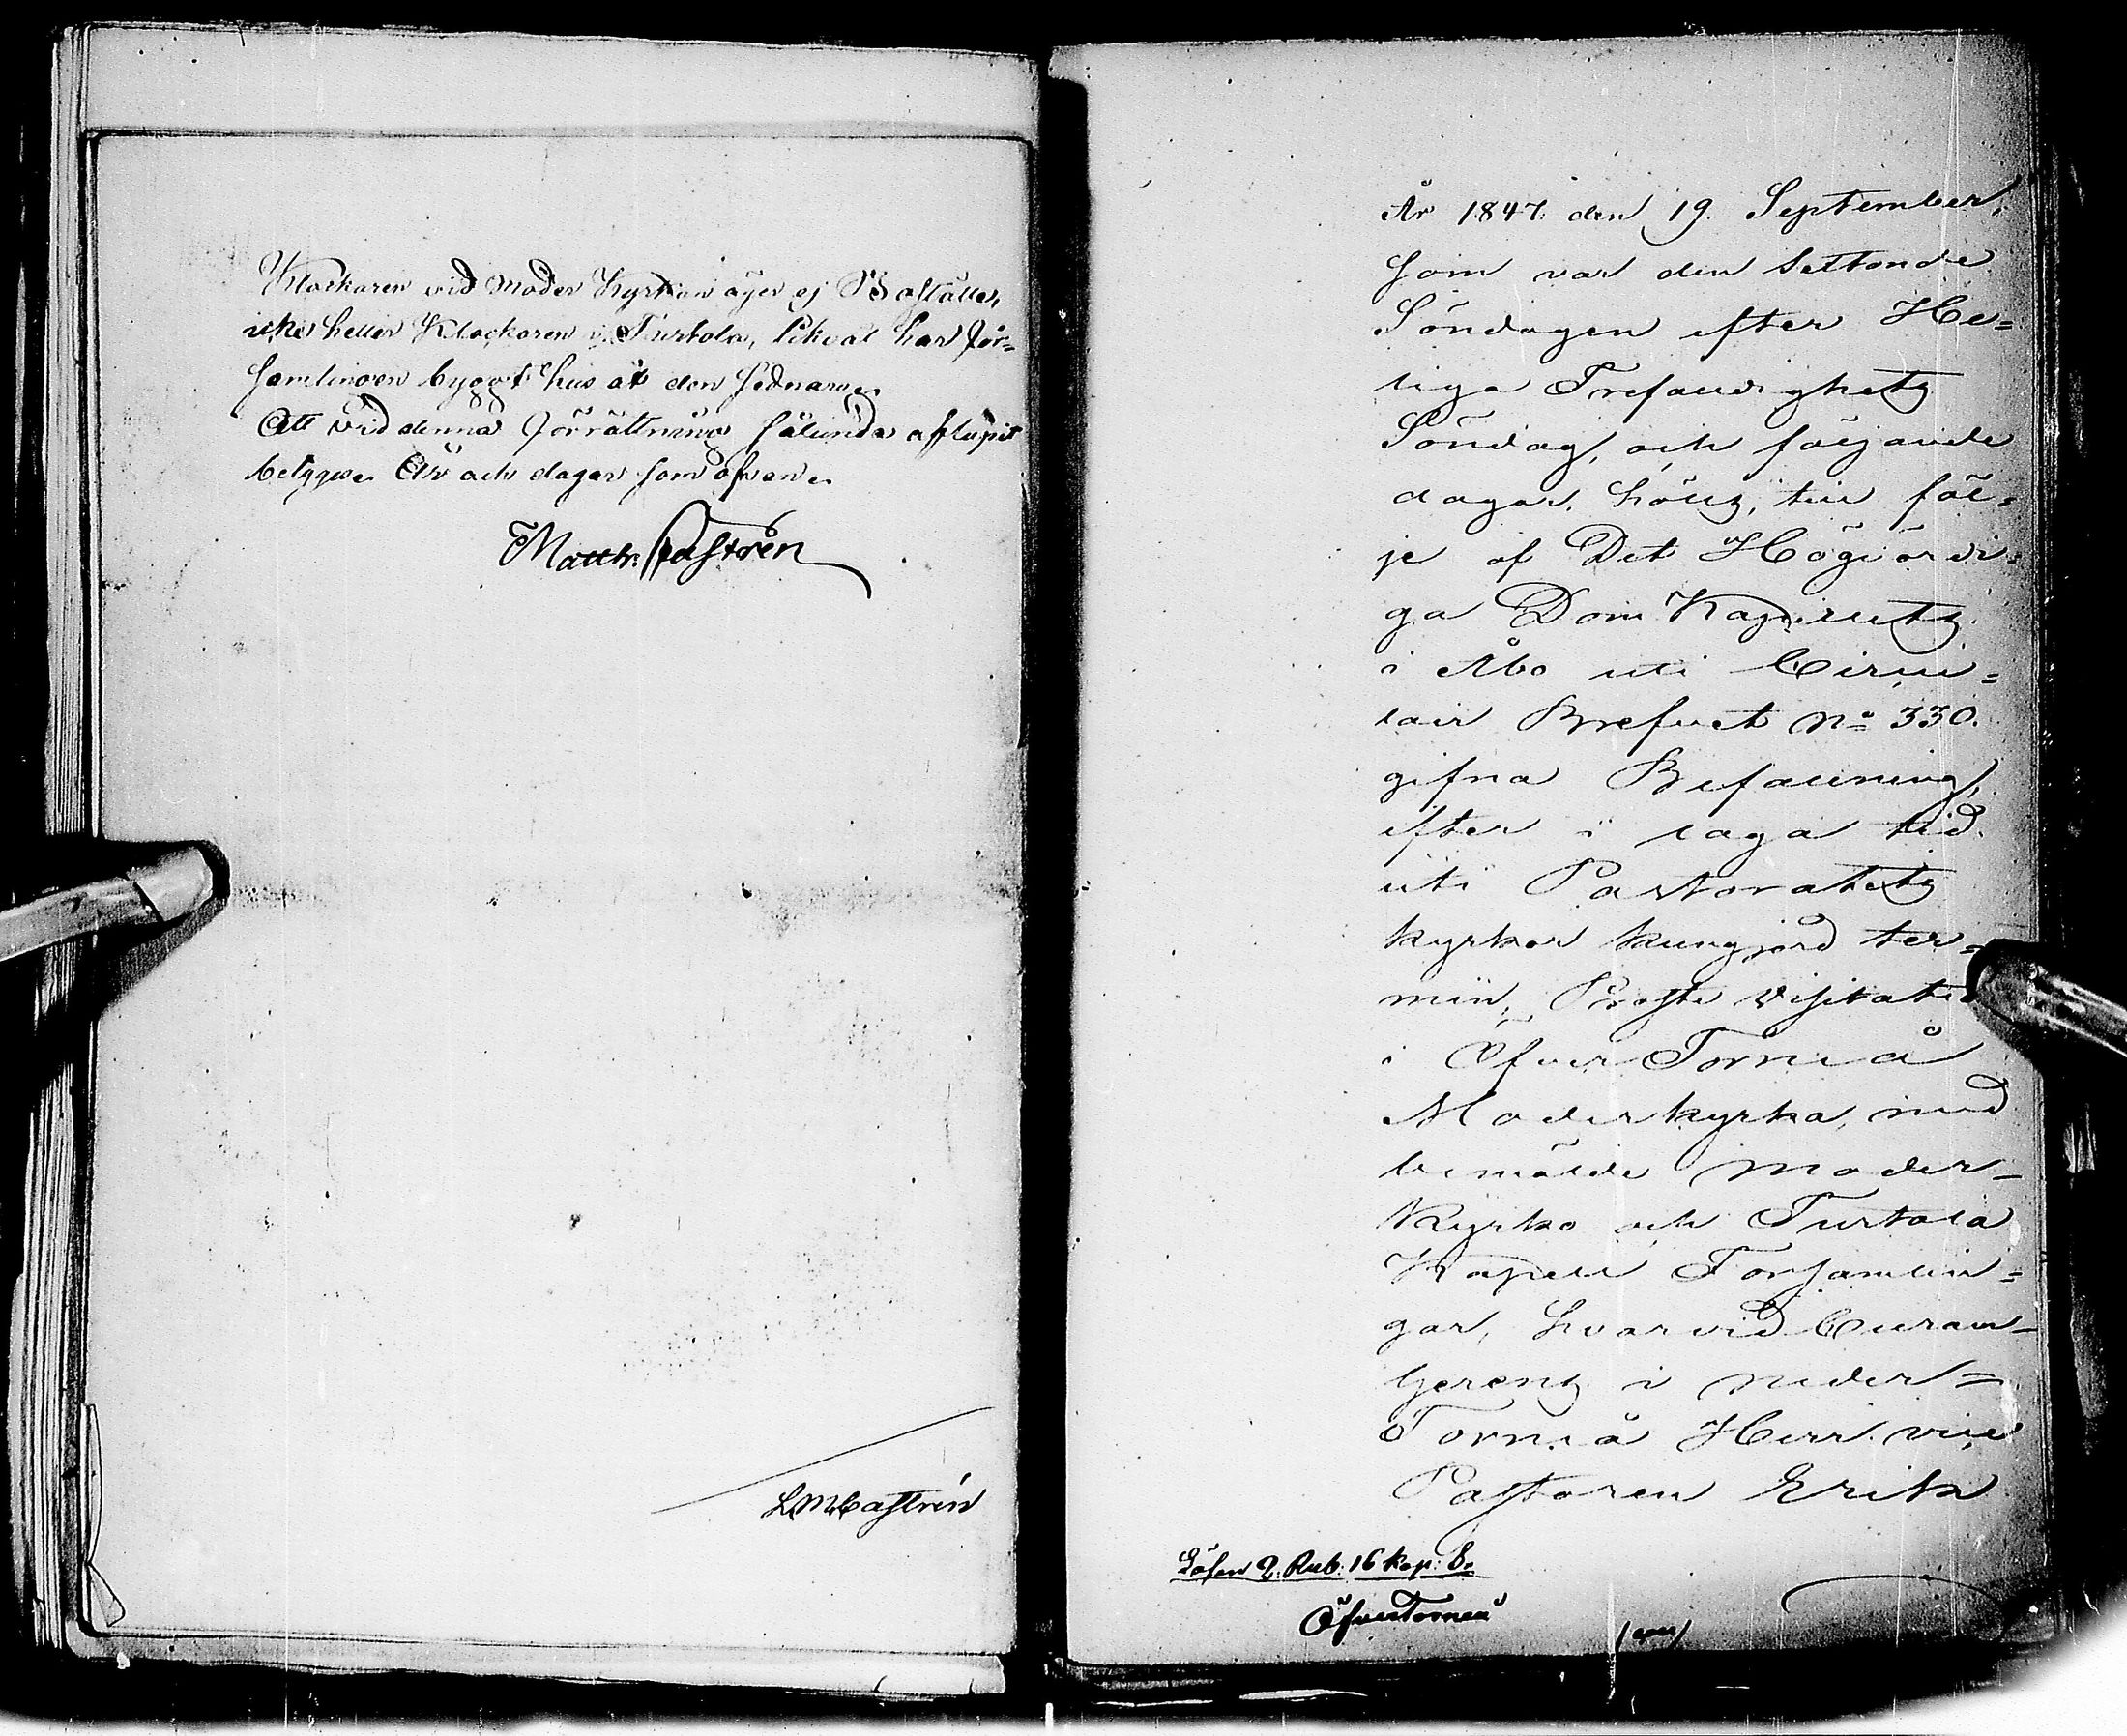 Klockaren vid Moder Kyrkan äger ej Boställe,
icke heller Klockaren i Turtola, likväl har För-
samlingen byggt hus åt den sednare.
Att vid denna förrättning sålunda aflupit
betygar. År och dagar som ofvan.
Matth. Castrén
LMCastrén
År 1847 den 19 September,
som var den Sextonde
Söndagen efter He=
liga Trefaldighets
Söndag, och följande
dagar, hölls, till föl=
je af Det Högvördi=
ga Dom Kapitlets
i Åbo uti Circu=
lair Brefvet No 330.
gifna Befallning,
efter i laga tid
uti Pastoratets
kyrkor kungjord ter=
min, Prosts Visitation
i Öfver Torneå
Moderkyrka, med
bemälde Moder-
Kyrko och Turtola
Kapell Församlin=
gar, hvarvid Curam-
Gerens i Neder=
Torneå Herr vice
Pastoren Erik
Lösen 2. Rub. 16 kop. S.
ÖfverTorneå